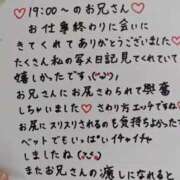 ♡19:00〜のお兄さん♡
お仕事終わりに会いに
きてくれてありがとうございました♡
たくさん私の写メ日記見てくれていて
嬉しかったです(^ω^)
お兄さんにお尻さわられて興奮
しちゃいました♡さわり方エッチですね♡
お尻にスリスリされるのも気持ちよかった
ベットでもいっぱいイチャイチャ
しましたね
またお兄さんの癒しになれると